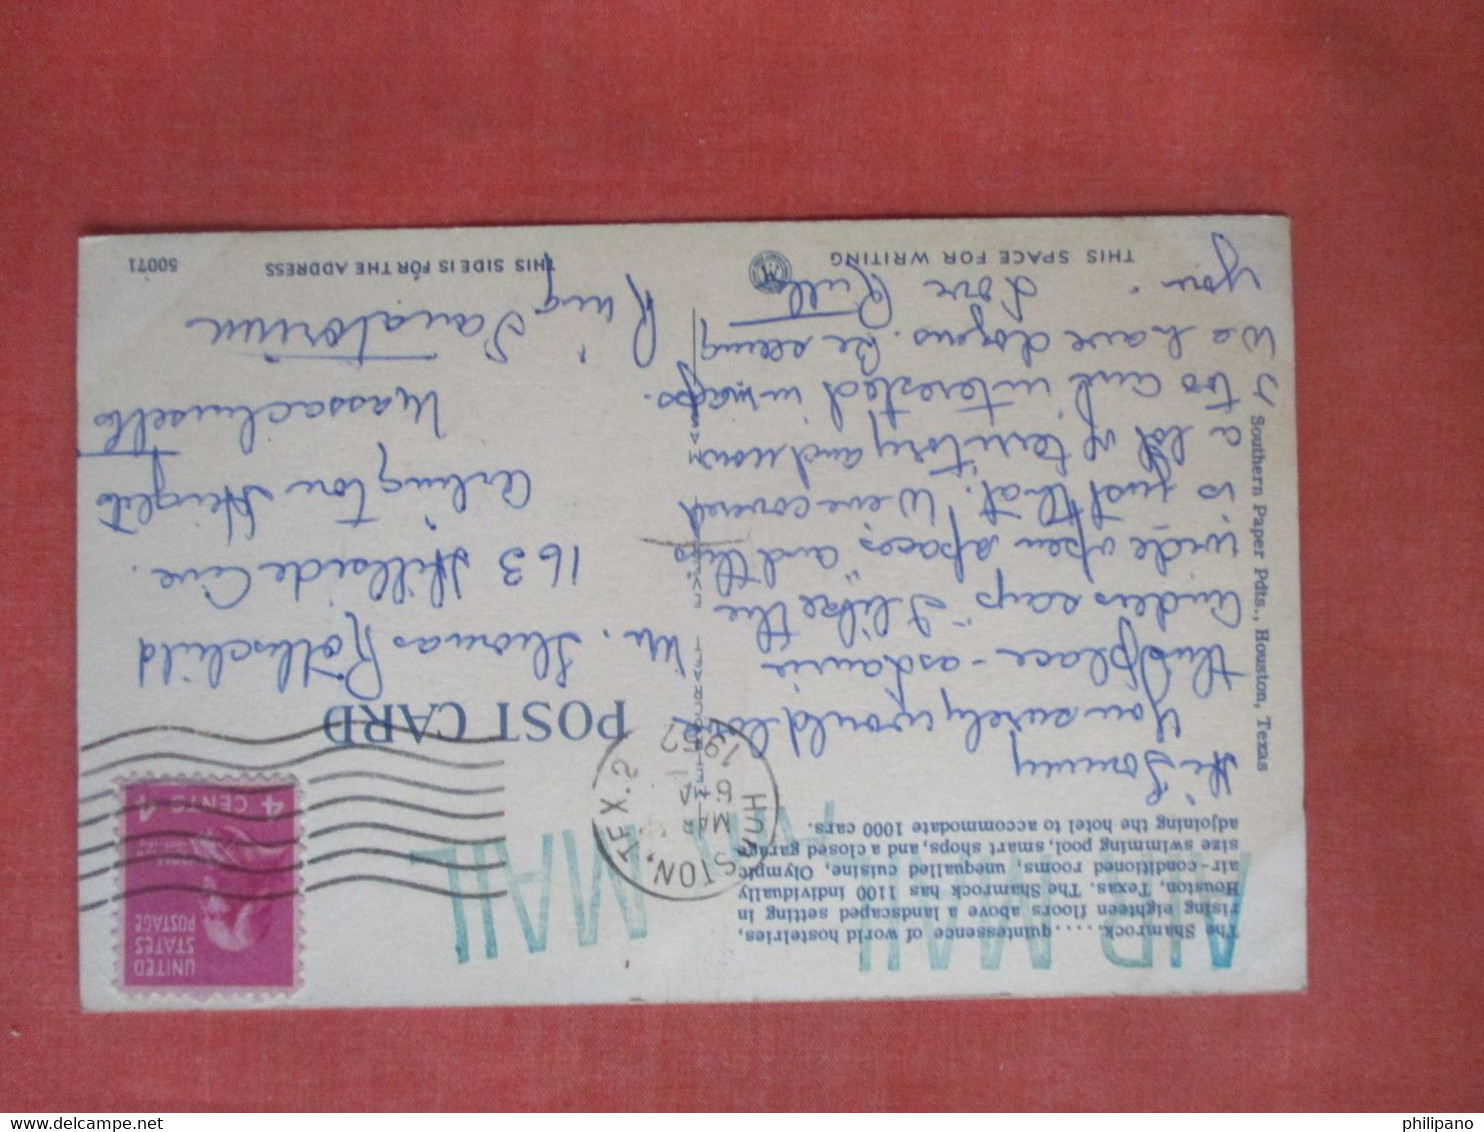 The Shamrock......quintessence of world hostelries,
rising eighteen floors above a landscaped setting in
Houston, Texas. The Shamrock has 1100 individually
air-conditioned rooms, unequalled cuisine, Olympic
size swimming pool, smart shops, and a closed garage
adjoining the hotel to accommodate 1000 cars.
AIR MAIL
AIR MAIL
Hi Tommy
You surely would love
this place - as
Anders says "I like the
wide open spaces" and this
is just that. We've covered
a lot of territory and now
I too am interested in maps.
We have dozens. Be seeing
you.
Love
THIS SPACE FOR WRITING
Southern Paper Pdts., Houston, Texas
HOUSTON, TEX. 2
MAR
6
1952
UNITED
STATES
POSTAGE
4 CENTS 4
POST CARD
Mr. Thomas Rothschild
163 Hillside Ave.
Arlington Heights
Massachusetts
Ring Sanatorium
THIS SIDE IS FOR THE ADDRESS
50071
philipano